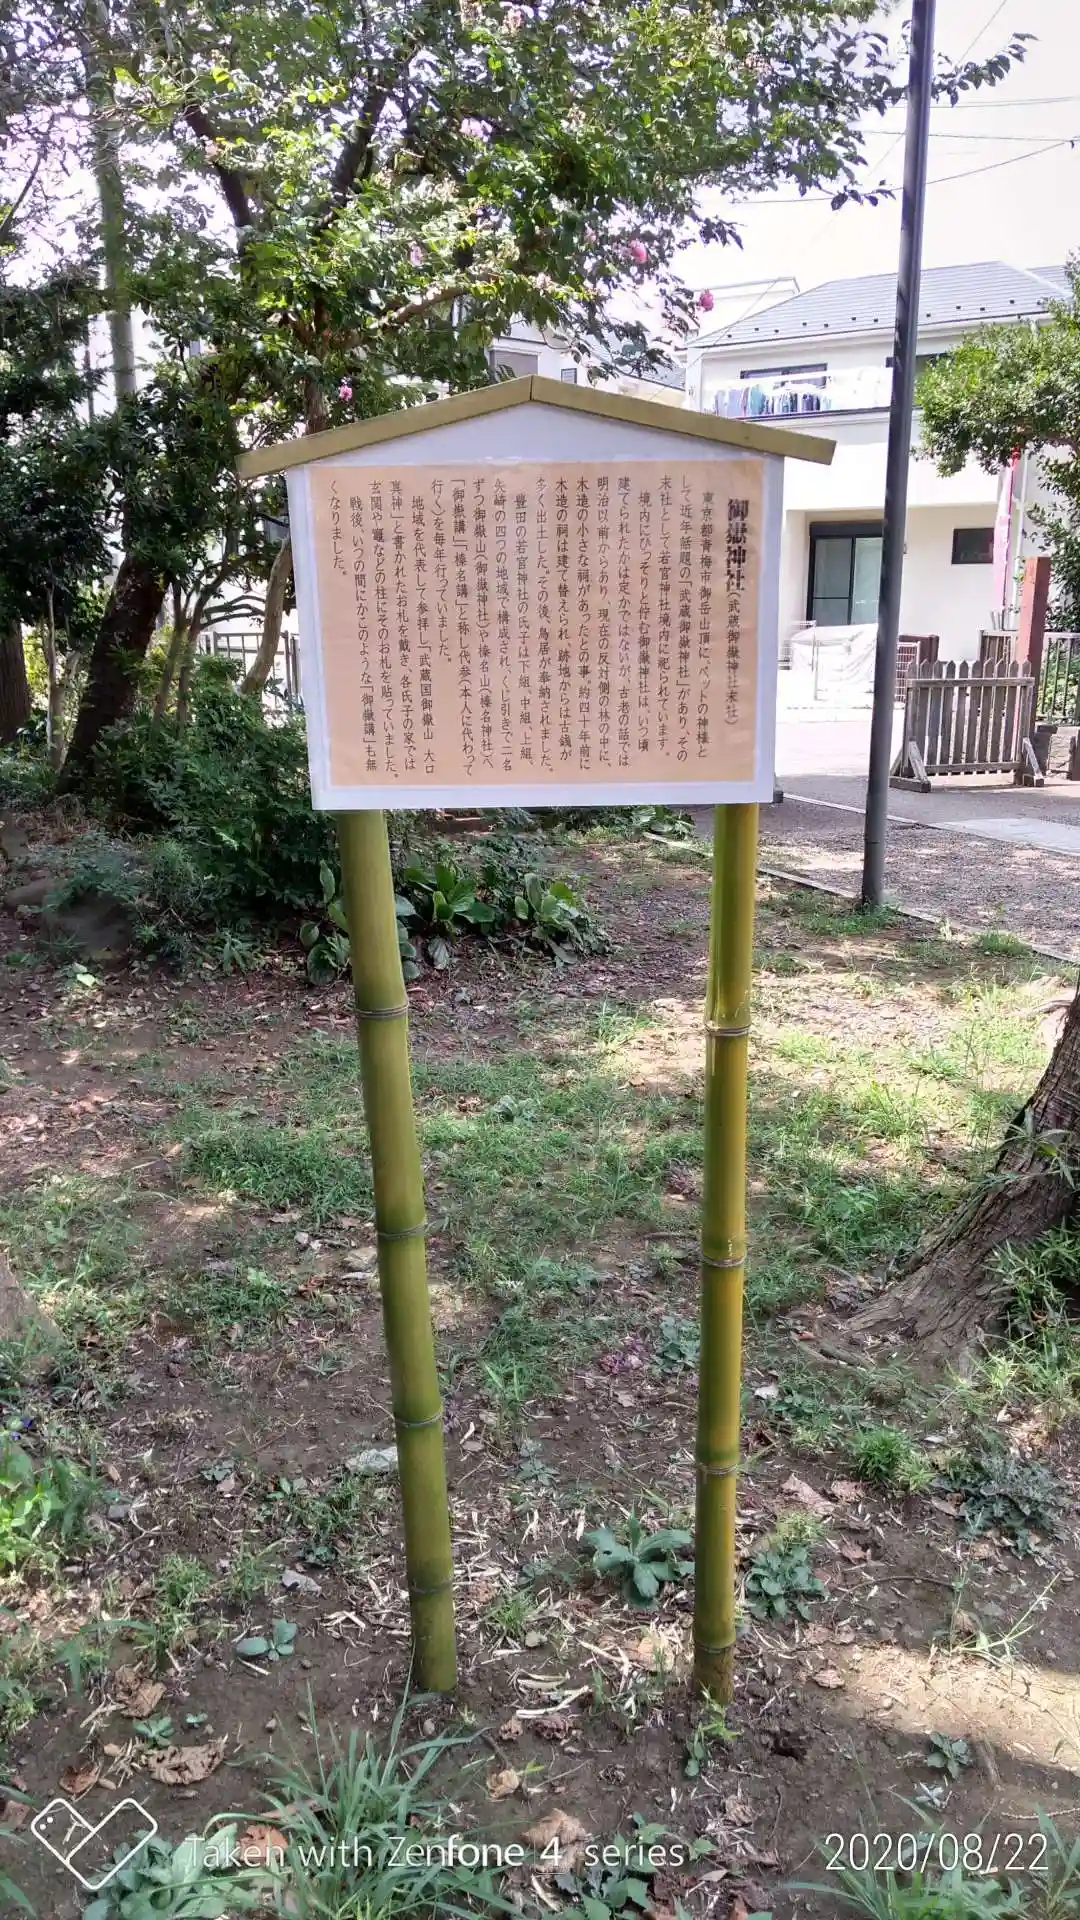 御嶽神社(武蔵御嶽神社末社)
東京都青梅市御岳山頂に、ペットの神様と
して近年話題の「武蔵御嶽神社」があり、その
末社として若宮神社境内に祀られています。
境内にひっそりと佇む御嶽神社は、いつ頃
建てられたかは定かではないが、古老の話では
明治以前からあり、現在の反対側の林の中に、
木造の小さな祠があったとの事。約四十年前に
木造の祠は建て替えられ、跡地からは古銭が
多く出土した。その後、鳥居が奉納されました。
豊田の若宮神社の氏子は下組、中組、上組、
矢崎の四つの地域で構成され、くじ引きで二名
ずつ御嶽山(御嶽神社)や榛名山(榛名神社)へ
「御嶽講」「榛名講」と称し代参(本人に代わって
行く)を毎年行っていました。
地域を代表して参拝し「武蔵国御嶽山 大口
真神」と書かれたお札を戴き、各氏子の家では
玄関や竈などの柱にそのお札を貼っていました。
戦後、いつの間にかこのような「御嶽講」も無
くなりました。
Taken with Zenfone 4 series
2020/08/22